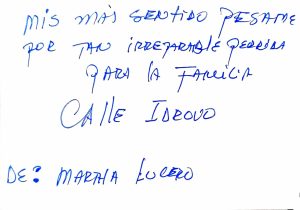 MIS MÁS SENTIDO PESAME
POR TAN IRREPARABLE PERDIDA
PARA LA FAMILIA
CALLE IDROVO
DE: MARTHA LUCERO